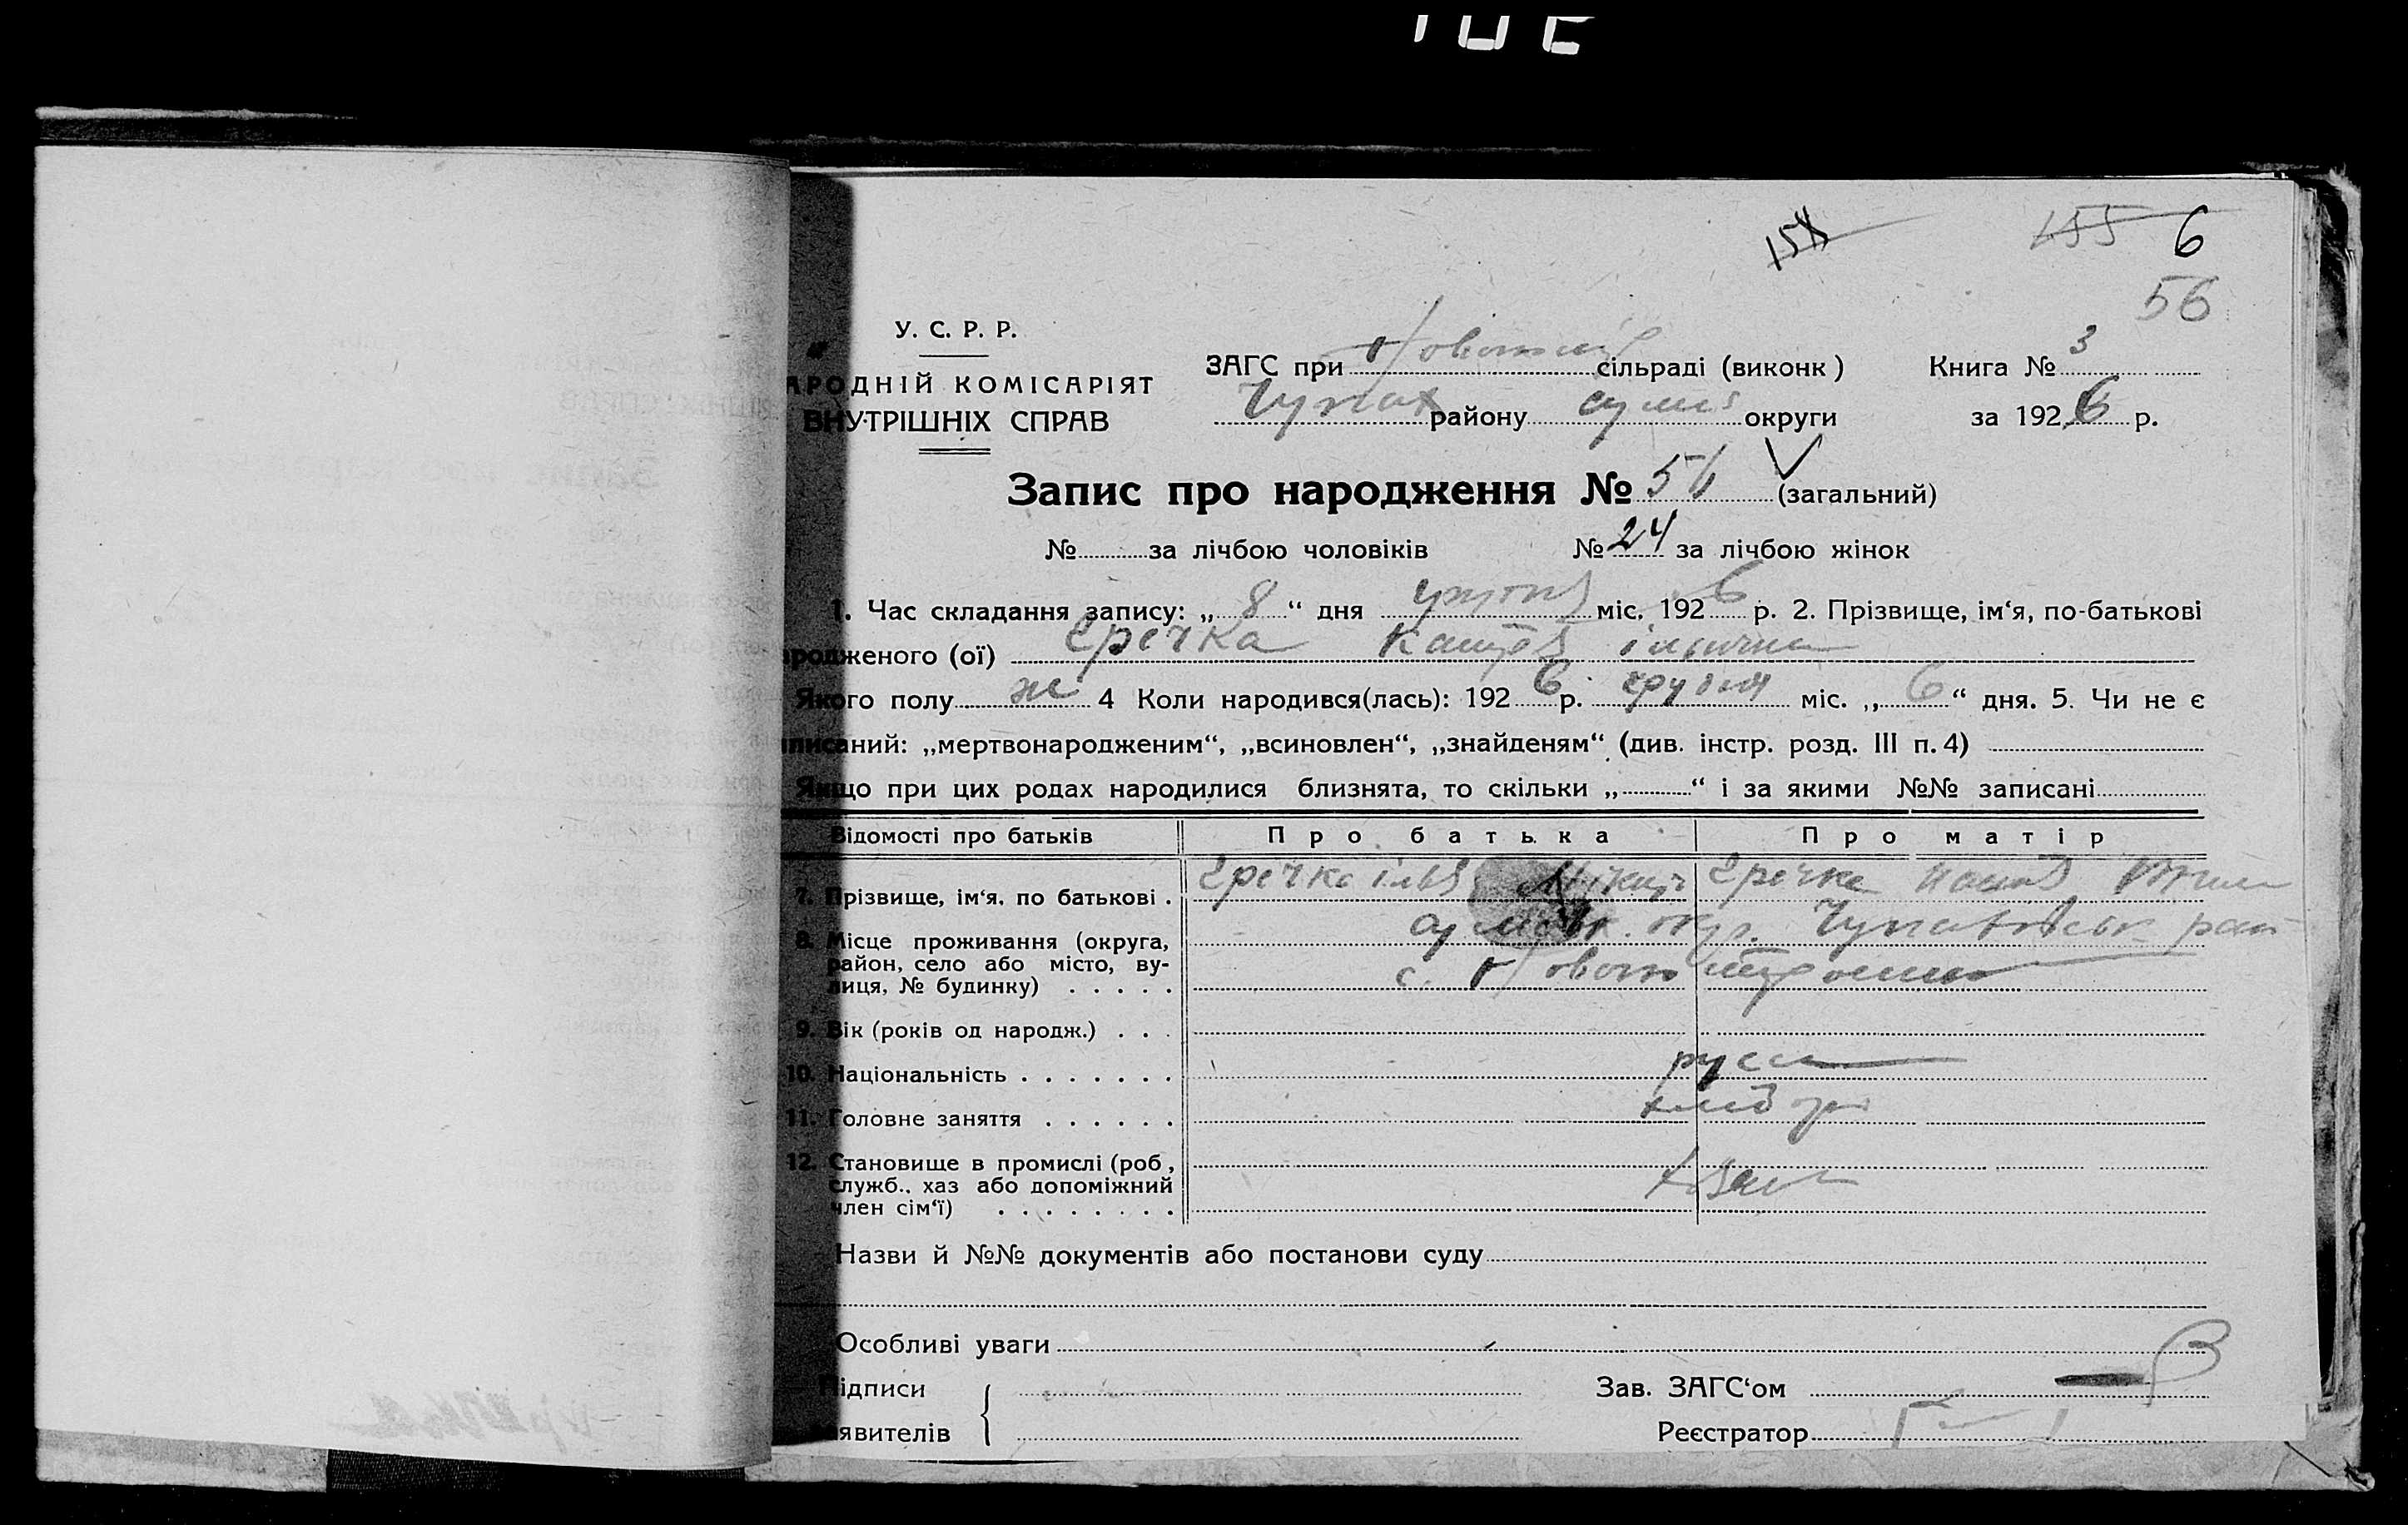 158
155 6
56
У. С. Р. Р.
АРОДНІЙ КОМІСАРІЯТ
ВНУТРІШНІХ СПРАВ
ЗАГС при сільраді (виконк) Книга № 3
Чупах району Сумс округи за 1926 р.
Запис про народження № 56 (загальний)
№ за лічбою чоловіків № 24 за лічбою жінок
1. Час складання запису: „ 8 “ дня міс. 1926 р. 2. Прізвище, ім‘я, по-батькові
родженого (ої) Гречка
Якого полу ж 4 Коли народився(лась): 1926 р. грудня міс. „ 6 “ дня. 5. Чи не є
писаний: „мертвонародженим“, „всиновлен“, „знайденям“ (див. інстр. розд. III п. 4)
Якщо при цих родах народилися близнята, то скільки „ “ і за якими №№ записані
Відомості про батьків Про батька Про матір
7. Прізвище, ім‘я, по батькові . Гречка ілья Гречка
8. Місце проживання (округа, Сумськ. окр. Чупахівськ рай
район, село або місто, ву-
лиця, № будинку) . . . . . с.
9. Вік (років од народж.) . . .
10. Національність . . . . . . . русс
11. Головне заняття . . . . . . хлібор
12. Становище в промислі (роб.,
служб., хаз або допоміжний хазяи
член сім‘ї) . . . . . . . .
Назви й №№ документів або постанови суду
Особливі уваги
Підписи Зав. ЗАГС‘ом
явителів Реєстратор